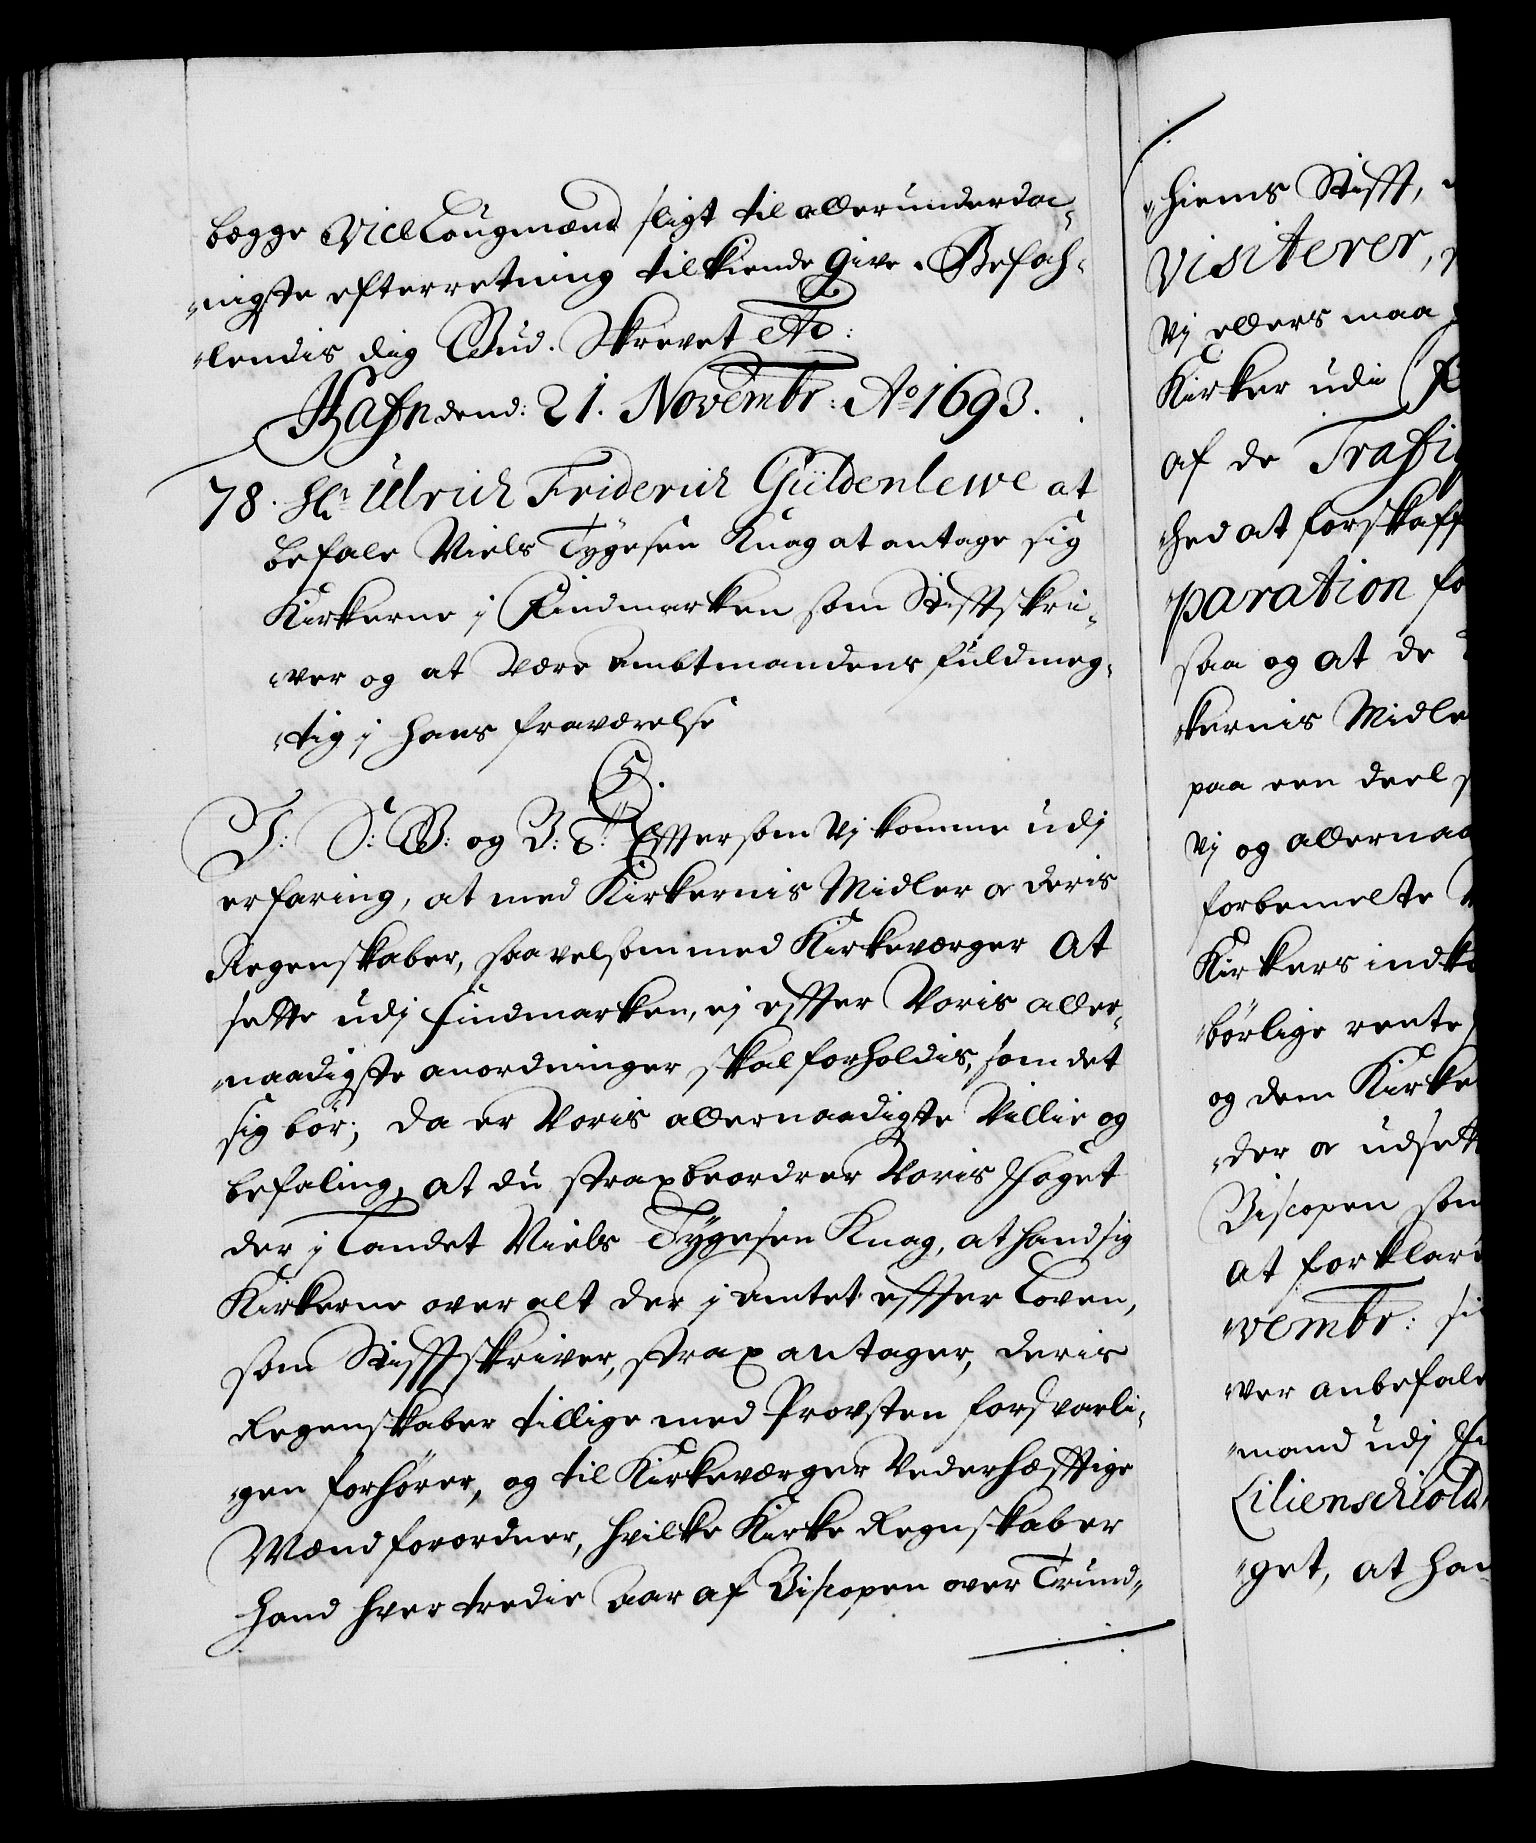 begge Vice Laugmænd sligt til allerunderda-
-nigste efterretning tilkiende give. Befah-
-lendis dig Gud. Skrevet etc:
Hafn dend: 21. Novembr: Ao 1693.
78. Hr. Ulrich Friderich Güldenlewe at
befale Niels Tygesen Knag at antage sig
Kirkerne j Findmarken som Stifftskri-
-ver og at være Ambtmandens fuldmeg-
-tig j hans fraværelse
C5.
V: S: G: og B: T: Efftersom Vj komme udj
erfaring, at med Kirkernis Midler oc deris
Regenskaber, saavelsom med Kirkeværger at
sette udj Findmarken, ej effter Voris aller-
-naadigste anordninger skal forholdis, som det
sig bör; da er Voris allernaadigste Villie og
befaling, at du strax beordrer Voris Foget
der j Landet Niels Tygesen Knag, at hand sig
Kirkerne over alt der j Amtet effter Loven,
som Stifftskriver, strax antager, deris
Regenskaber tillige med Provsten forsvarli-
-gen forhörer, og til Kirkeværger Vederhæfftige
Mænd forordner, hvilke Kirke Regnskaber
hand hver tredie Aar af Biscopen over Trund-
-hiems Stifft,
visiterer,
Vj ellers maa
Kirker udi
af de Trafi
-hed at forskaff
paration fo
saa og at de
-kernis Midle
paa een deel
Vj og allernaa
forbemelte
Kirkers indk
-börlige rente
og dem Kirke
-der oc udsett
Biscopen som
at forklar
-vembr: si
-ver anbefale
-mand udj Fi
Lilienschiold
-get, at han